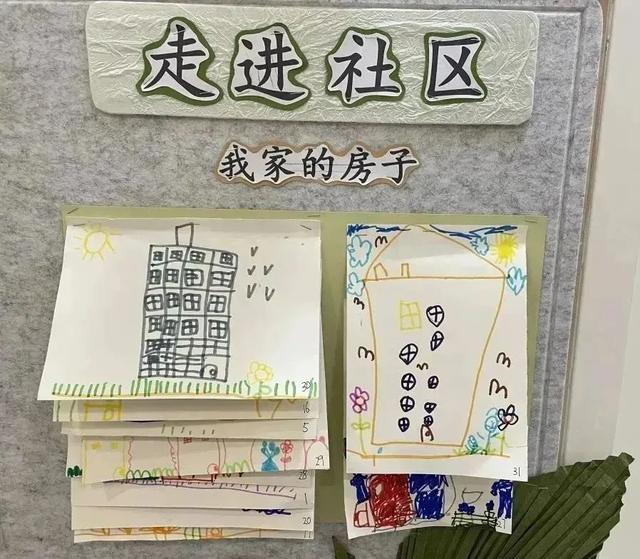 走进社区
我家的房子
30
16
5
29
28
1
20
11
31